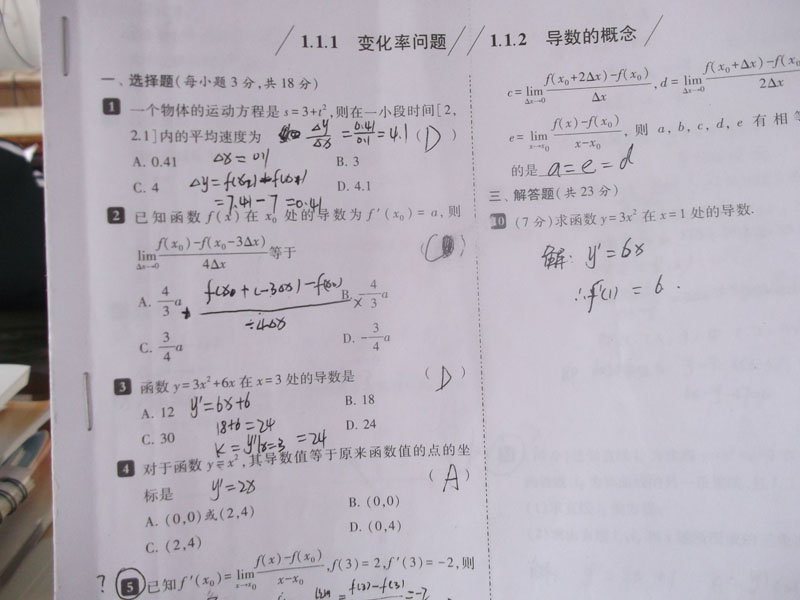 1.1.1 变化率问题
1.1.2 导数的概念
一、选择题(每小题3分,共18分)
1 一个物体的运动方程是 s=3+t²,则在一小段时间[2,
2.1]内的平均速度为 Δy/Δx = 0.41/0.1 = 4.1 ( D )
A. 0.41 Δx = 0.1 B. 3
C. 4 Δy = f(x₂) - f(x₁) D. 4.1
= 7.41 - 7 = 0.41
2 已知函数 f(x) 在 x₀ 处的导数为 f′(x₀)=a,则
lim Δx→0 f(x₀)-f(x₀-3Δx)/4Δx 等于 ( C )
A. 4/3 a B. -4/3 a
f(x₀+(-3Δx)-f(x₀)
÷4Δx
C. 3/4 a D. -3/4 a
3 函数 y=3x²+6x 在 x=3 处的导数是 ( D )
A. 12 y′=6x+6 B. 18
18+6=24
C. 30 D. 24
K = y′|x=3 = 24
4 对于函数 y=x²,其导数值等于原来函数值的点的坐
标是 y′=2x ( A )
A. (0,0)或(2,4) B. (0,0)
C. (2,4) D. (0,4)
? 5 已知 f′(x₀)=lim x→x₀ f(x)-f(x₀)/x-x₀,f(3)=2,f′(3)=-2,则
c=lim Δx→0 f(x₀+2Δx)-f(x₀)/Δx,d=lim Δx→0 f(x₀+Δx)-f(x₀)/2Δx
e=lim x→x₀ f(x)-f(x₀)/x-x₀,则 a,b,c,d,e 有相等
的是 a=e=d
三、解答题(共23分)
10 (7分)求函数 y=3x² 在 x=1 处的导数.
解: y′=6x
∴f′(1) = 6.